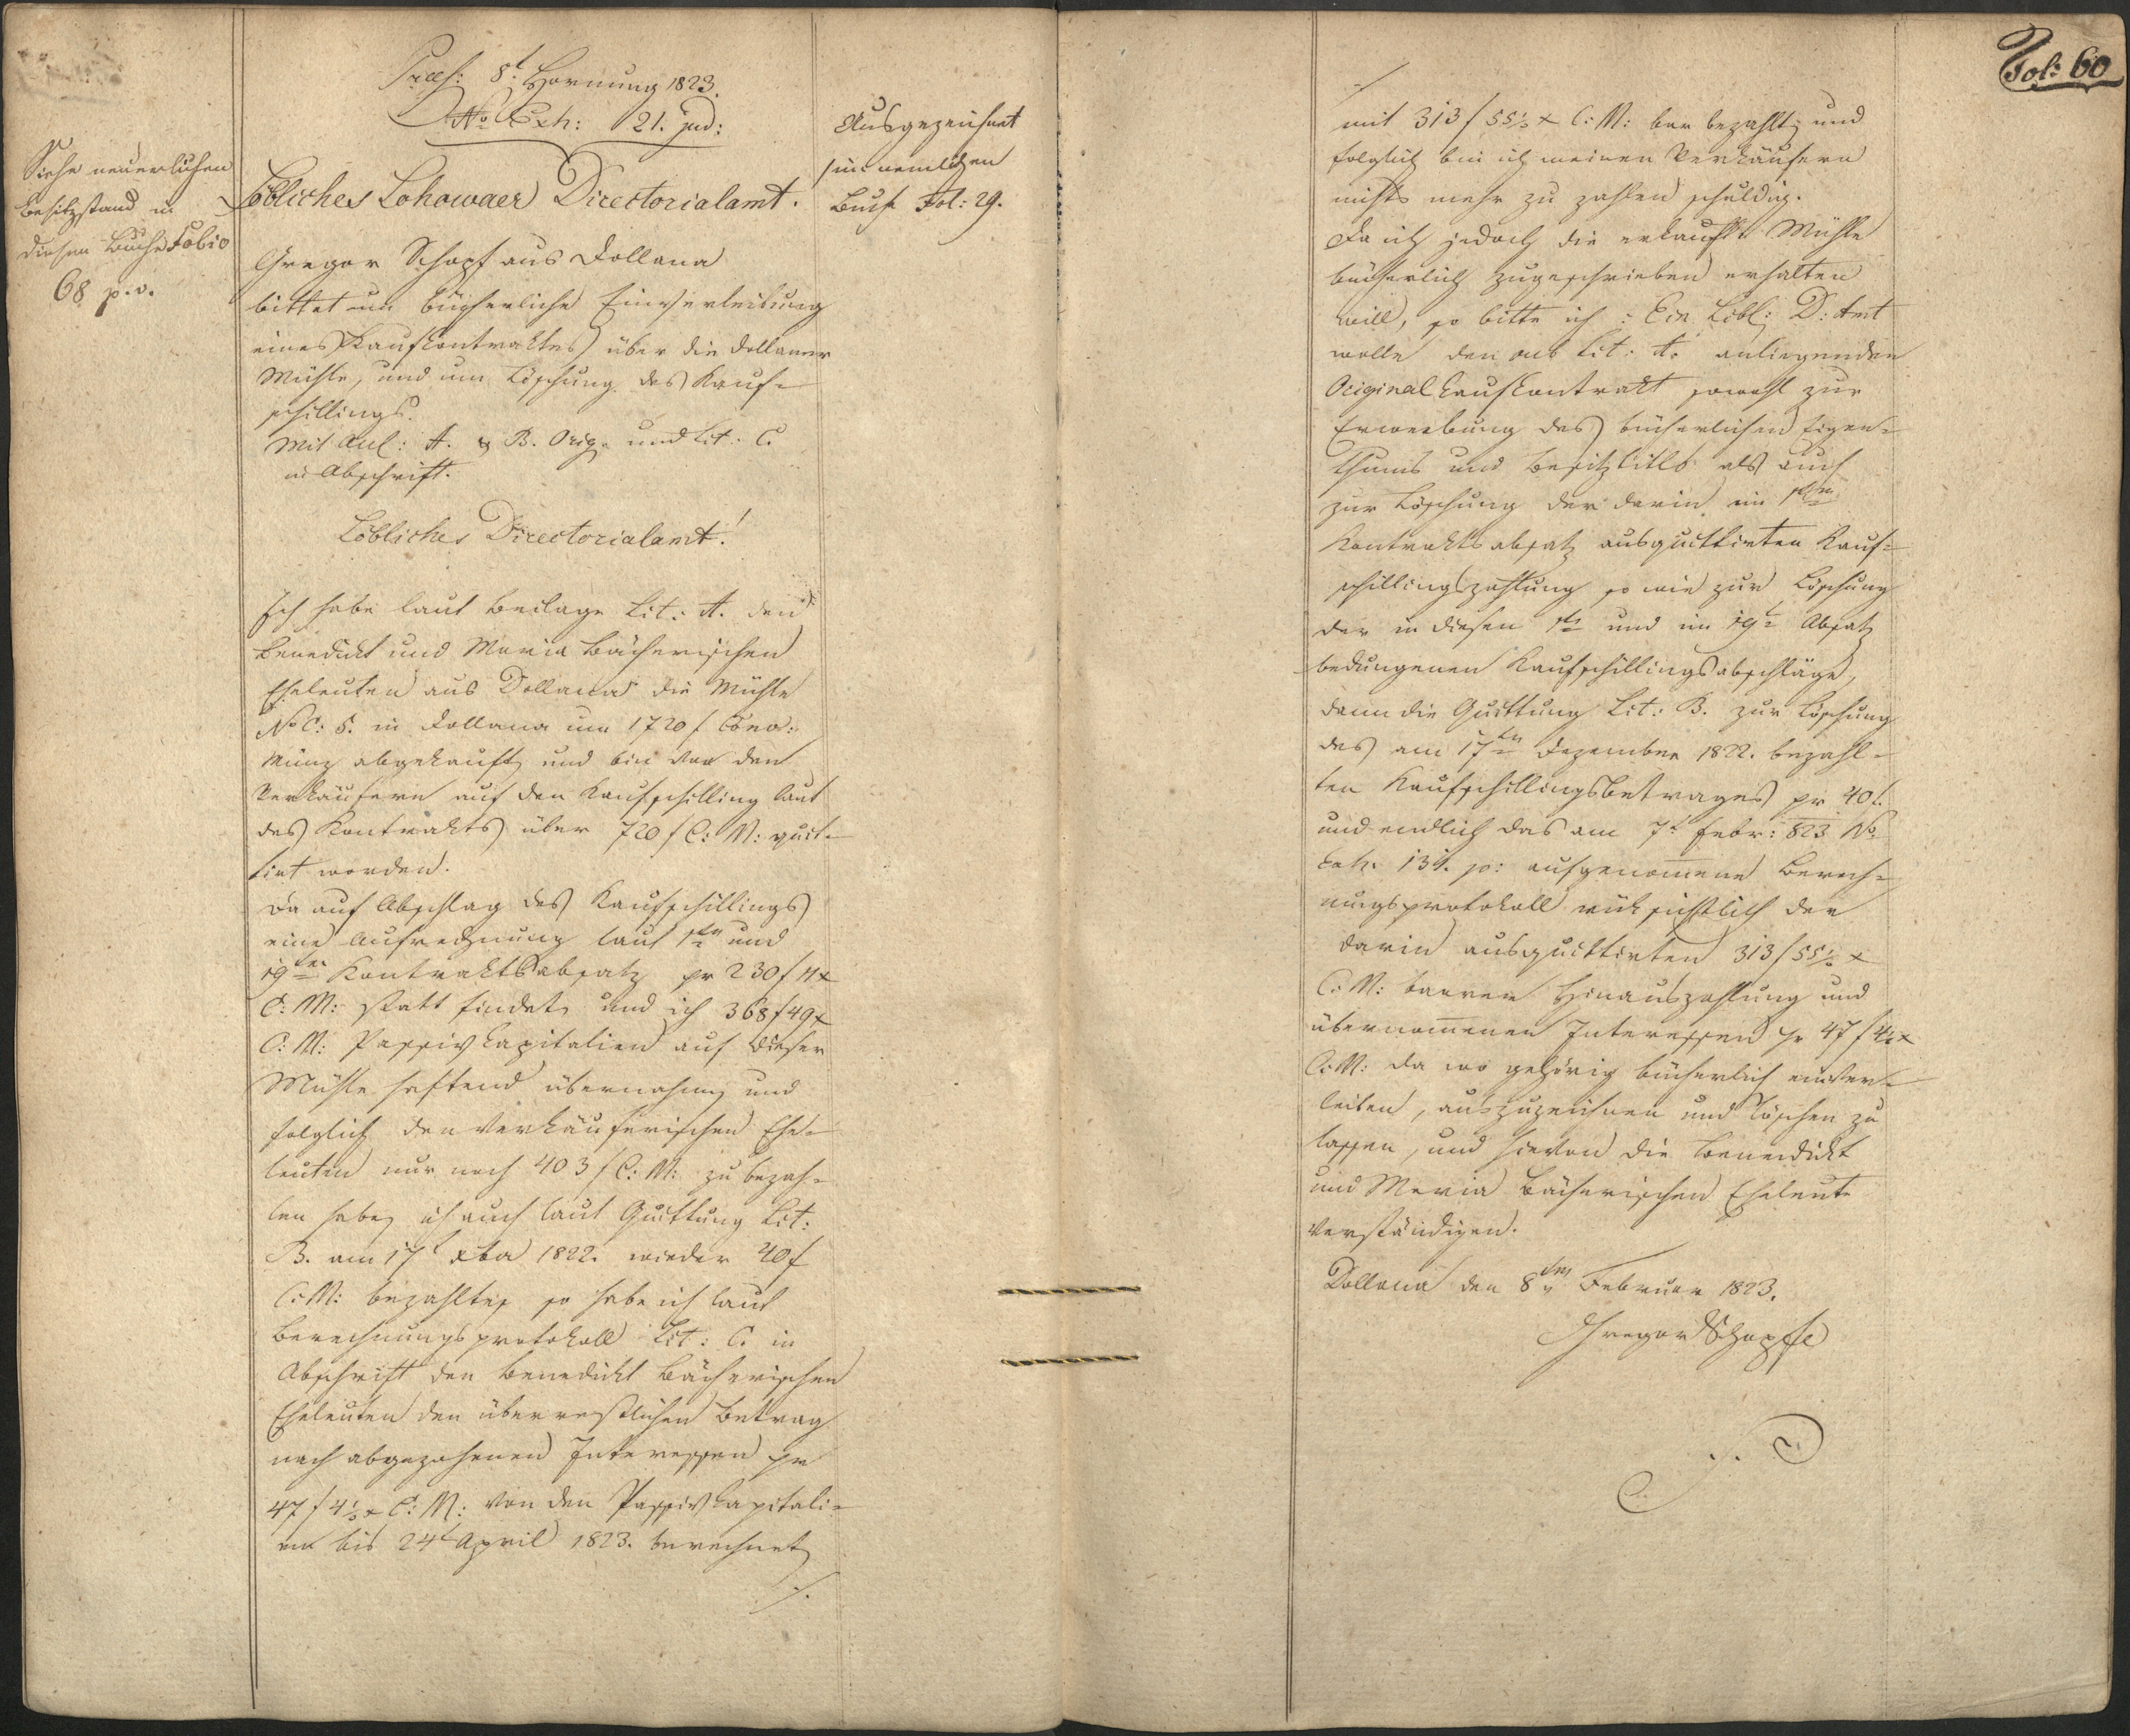 Præs: 8t Hornung 1823.
No Exh: 121. jud:
Siehe neuerlichen
Besitzstand in
diesem Buche Folio
68 p.v.
Ausgezeichnet
im nemlichen
Buch Fol: 29.
Löbliches Lohowaer Directorialamt.
Gregor Schopf aus Dollana
bittet um bücherliche Einverleibung
eines Kaufkontraktes über die Dollaner
Mühle, und um Löschung des Kauf-
schillings.
Mit Anl: A. & B. Orig. und Lit: C.
in Abschrift.
Löbliches Directorialamt!
Ich habe laut Beilage Lit: A. den
Benedikt und Maria Bäherischen
Eheleuten aus Dollana die Mühle
No C: 5. in Dollana um 1720 f Conv:
Münz abgekauft, und bin von den
Verkäufern auf den Kaufschilling laut
des Kontrakts über 720 f C: M: quit-
tirt worden.
Da auf Abschlag des Kaufschillings
eine Aufrechnung laut 1ten und
19ten Kontraktsabsatz pr 230 f 11 x
C: M: statt findet, und ich 368 f 49 x
C: M: Passivkapitalien auf dieser
Mühle haftend übernahm, und
folglich den verkäuferischen Ehe-
leuten nur noch 403 f C: M: zu bezah-
len habe, ich auch laut Quittung Lit:
B. am 17t xber 1822. wieder 40 f
C: M: bezahlte, so habe ich laut
Berechnungsprotokoll Lit: C. in
Abschrift den Benedikt Bäherischen
Eheleuten den überrestlichen Betrag
nach abgezohenen Interessen pr
47 f 4½ x C: M: von den Passivkapitali-
en bis 24t April 1823. berechnet
./.
Fol: 60
mit 313 f 55½ x C: M: bar bezahlt, und
folglich bin ich meinen Verkäufern
nichts mehr zu zahlen schuldig.
Da ich jedoch die erkaufte Mühle
bücherlich zugeschrieben erhalten
will, so bitte ich: Ein Löbl: D: Amt
wolle den sub Lit: A. anliegenden
Original Kaufkontrakt sowohl zur
Erwerbung des bücherlichen Eigen-
thums und Besitztitls als auch
zur Löschung der darin im 1ten
Kontraktsabsatz ausquittirten Kauf-
schillingszahlung so wie zur Löschung
der in diesen 1ten und im 19ten Absatz
bedungenen Kaufschillingsabschläge,
dann die Quittung Lit: B. zur Löschung
des am 17ten Dezember 1822. bezahl-
ten Kaufschillingsbetrages pr 40 f.
und endlich das am 7t Febr: 823 No
Exh. 131. jo: aufgenomene Berech-
nungsprotokoll rüksichtlich der
darin ausquittirten 313 f 55½ x
C: M: baaren Hinauszahlung und
übernomenen Interessen pr 47 f 4½ x
C: M: da wo gehörig bücherlich einver-
leiben, auszuzeichnen und löschen zu
lassen, und hievon die Benedikt
und Maria Bäherischen Eheleute
verständigen.
Dollana den 8ten Februar 1823.
Gregor Schopff